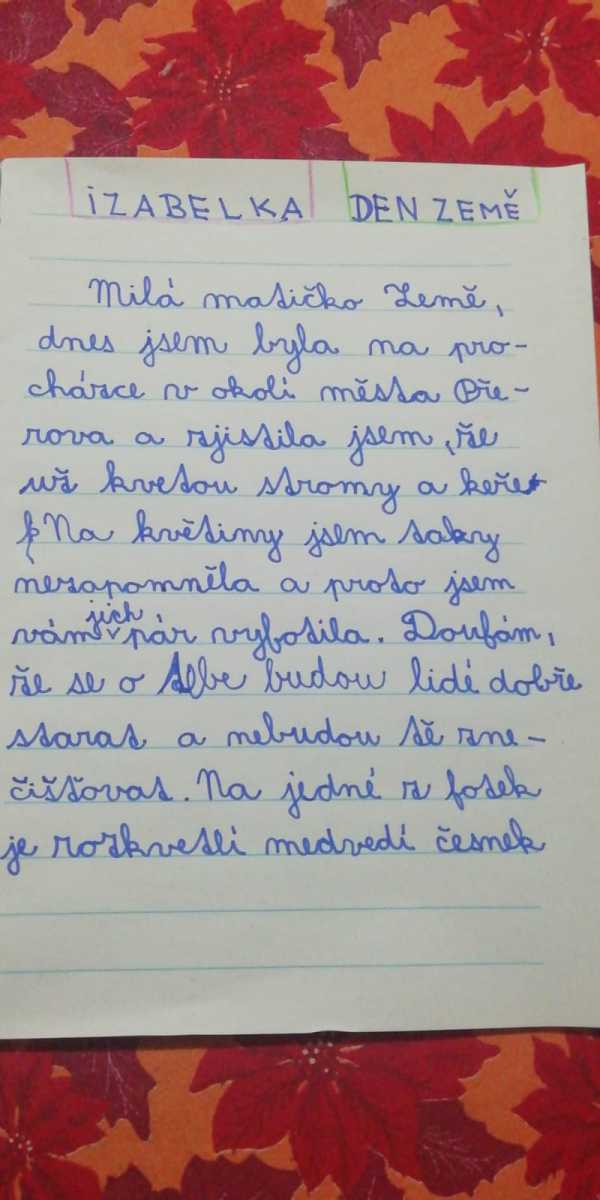 IZABELKA DEN ZEMĚ
Milá matičko Země,
dnes jsem byla na pro-
cházce v okolí města Pře-
rova a zjistila jsem, že
už kvetou stromy a keře
Na květiny jsem taky
nezapomněla a proto jsem
vám jich pár vyfotila. Doufám,
že se o Tebe budou lidé dobře
starat a nebudou tě zne-
čišťovat. Na jedné z fotek
je rozkvetlí medvedí česnek